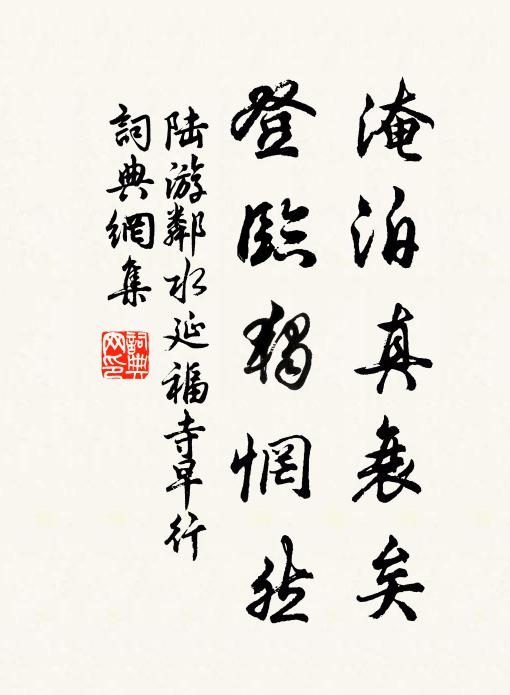 淹泊真衰矣
登臨獨惘然
陆游鄰水延福寺早行
詞典網集
詞典網印